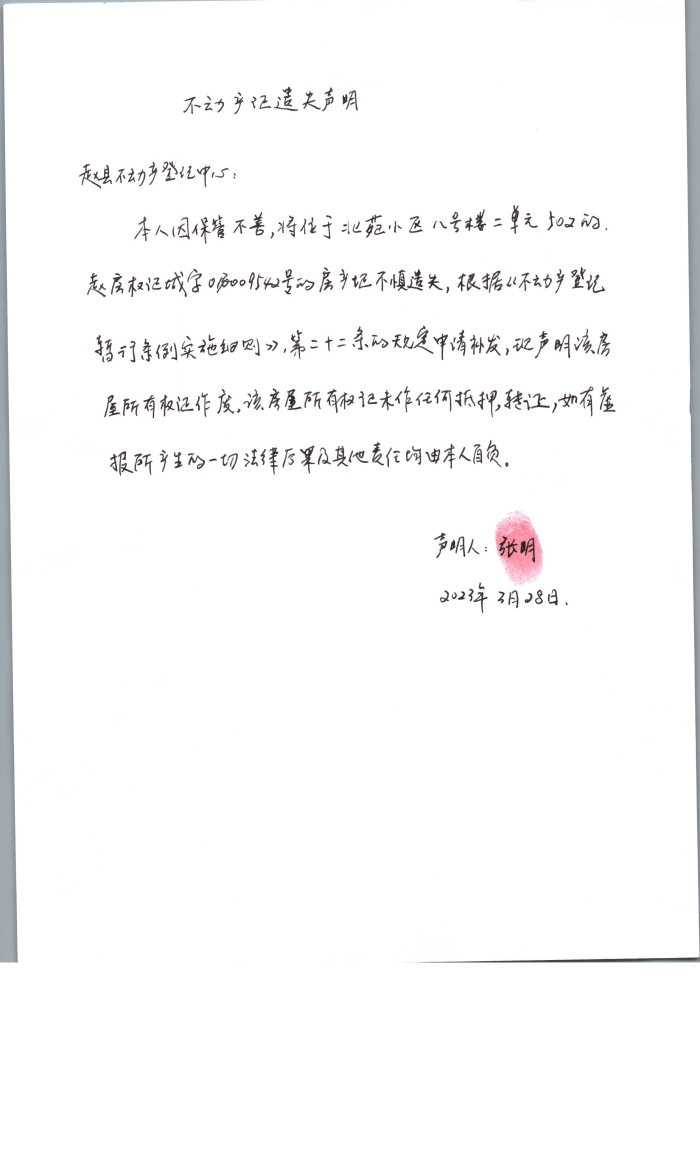 不动产证遗失声明
赵县不动产登记中心:
本人因保管不善,将位于北苑小区八号楼二单元502的.
赵房权证城字号的房产证不慎遗失,根据《不动产登记
暂行条例实施细则》,第二十二条的规定申请补发,现声明该房
屋所有权证作废,该房屋所有权证未作任何抵押,转让,如有虚
报所产生的一切法律后果及其他责任均由本人自负。
声明人:张明
2023年3月28日.